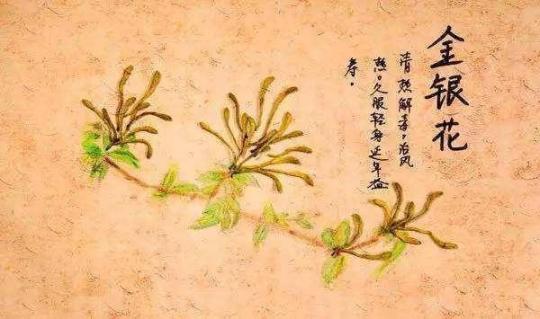 金银花
清热解毒。治风
热。久服轻身延年益
寿。